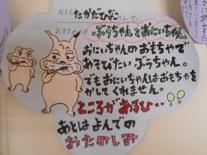 たかだひな
ぶうちゃんとおにいちゃん
おにいちゃんのおもちゃで
あそびたいぶうちゃん。
でもおにいちゃんはおもちゃを
かしてくれません。
ところがあるひ・・
あとはよんでの
おたのしみ